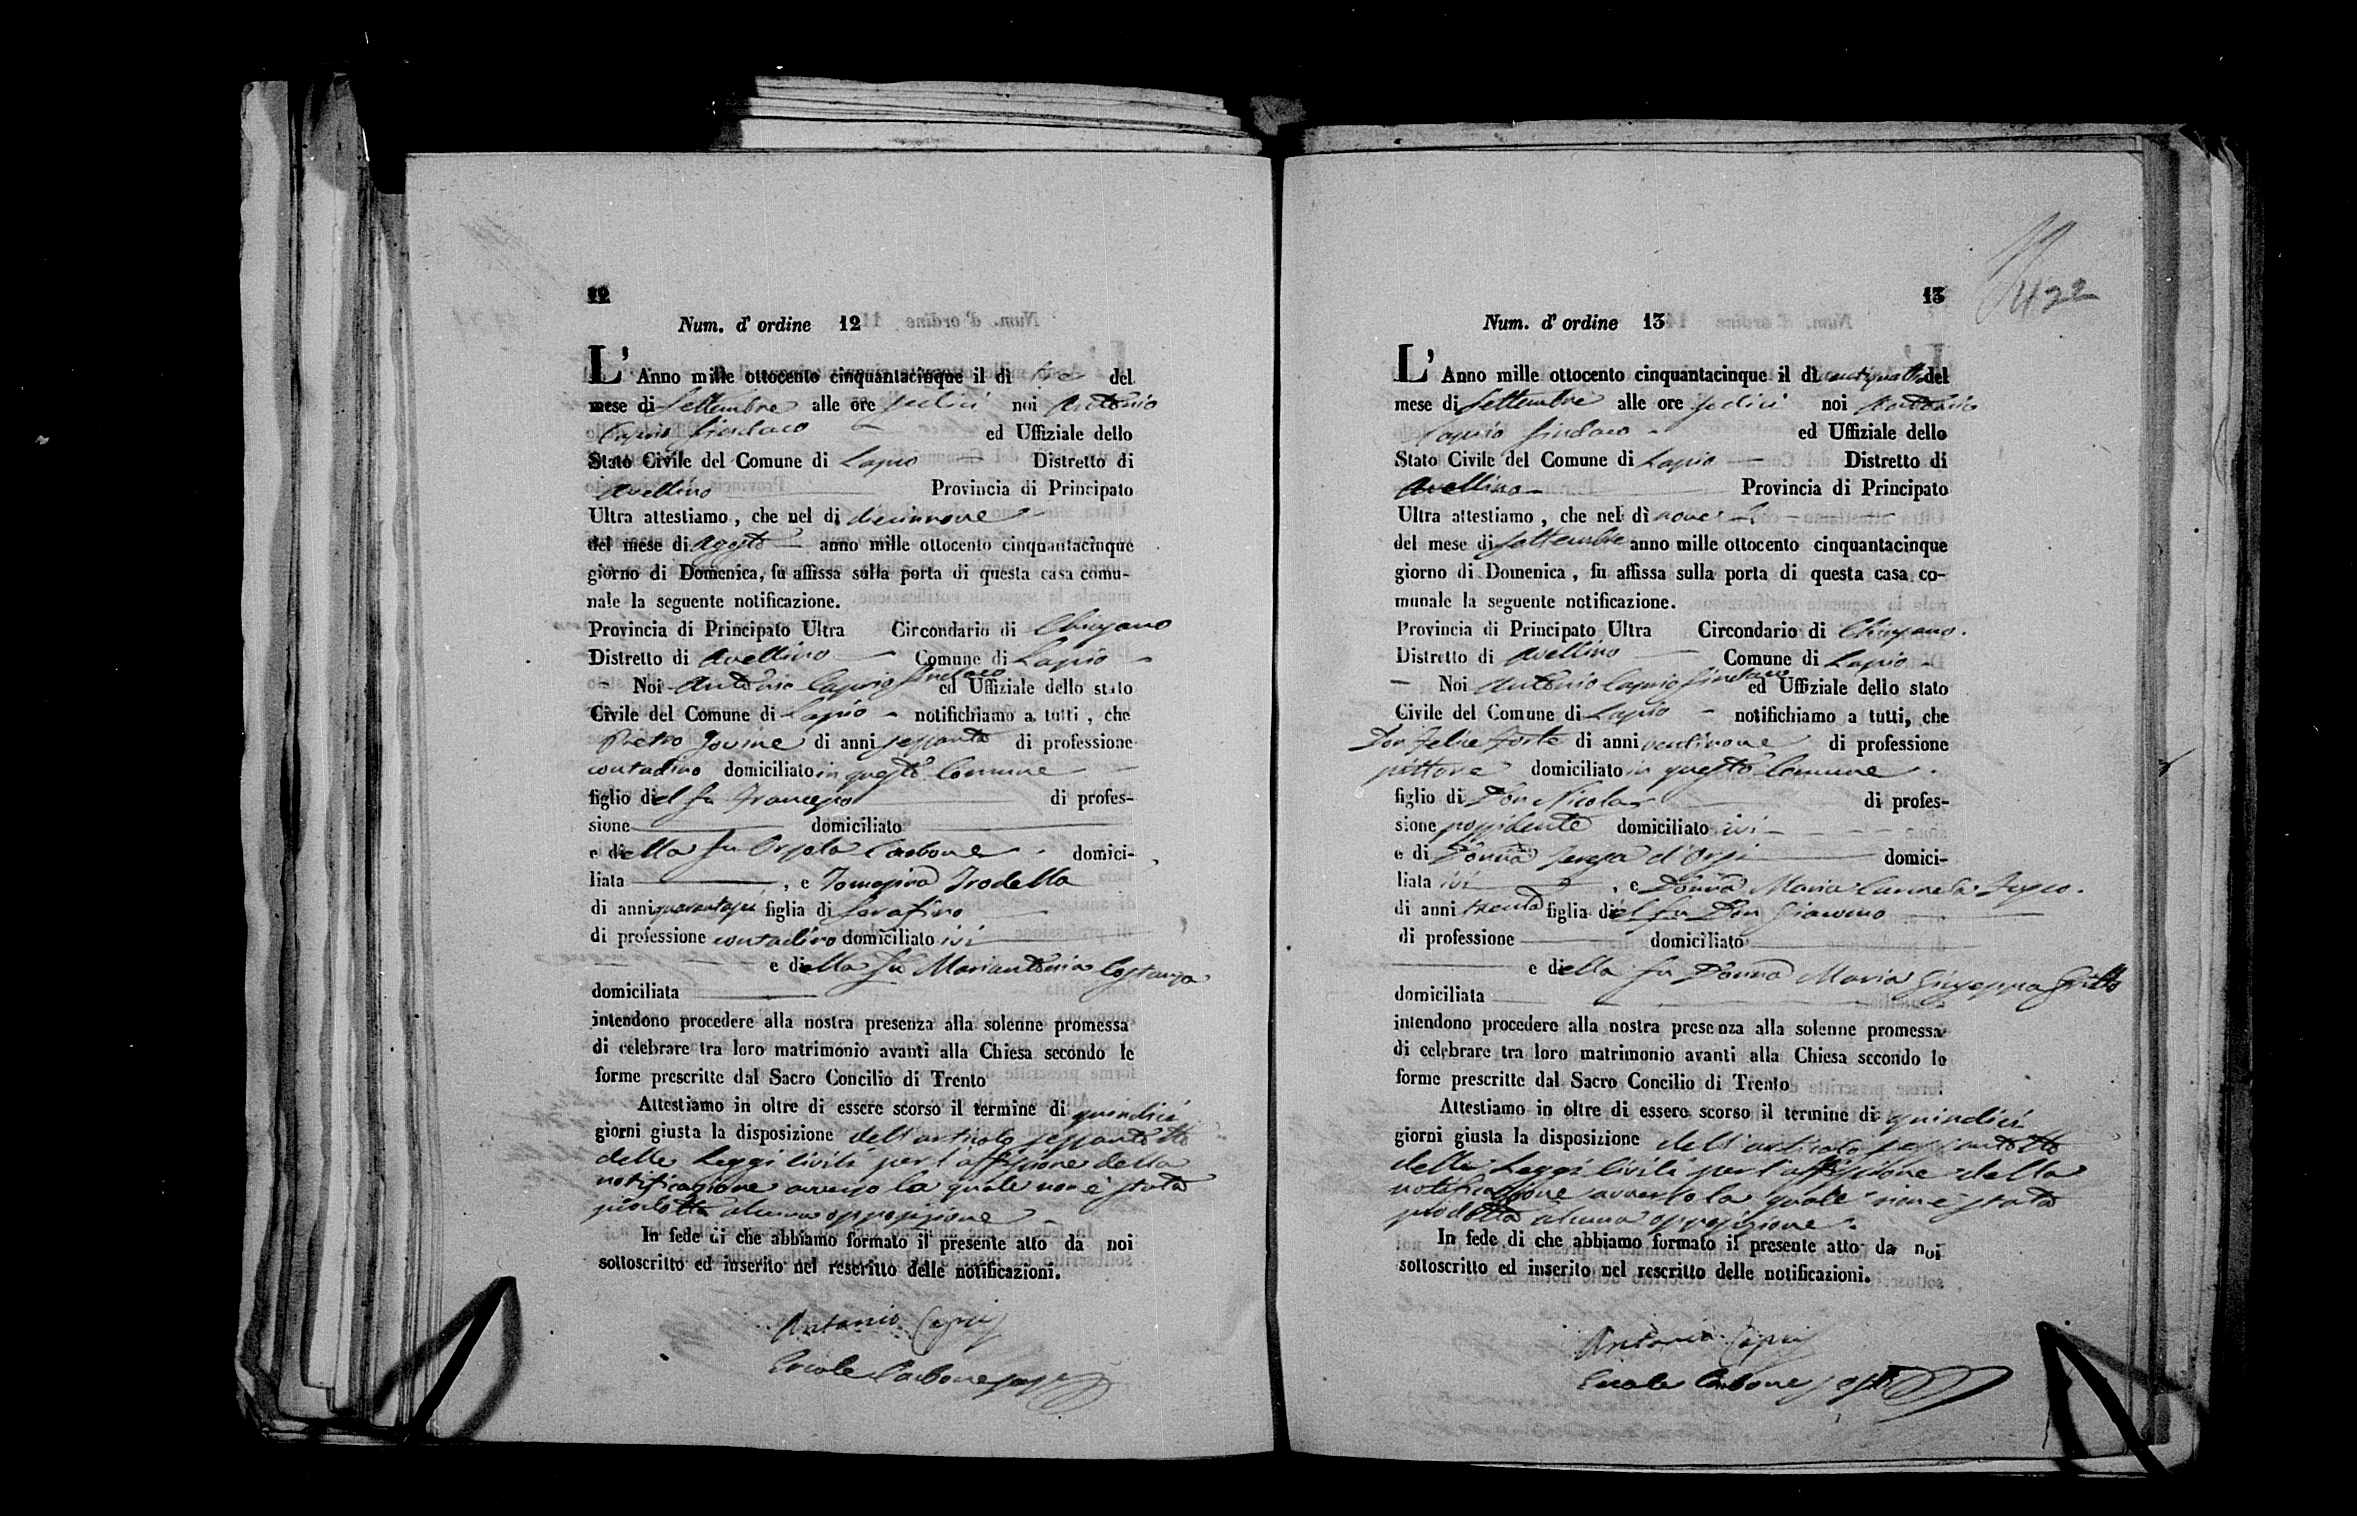 12
Num. d' ordine 12
L' Anno mille ottocento cinquantacinque il di tre del
mese di Settembre alle ore sedici noi Antonio
Caprio Sindaco ed Uffiziale dello
Stato Civile del Comune di Lapio Distretto di
Avellino Provincia di Principato
Ultra attestiamo, che nel di diciannove
del mese di Agosto anno mille ottocento cinquantacinque
giorno di Domenica, fu affissa sulla porta di questa casa comu-
nale la seguente notificazione.
Provincia di Principato Ultra Circondario di Chiusano
Distretto di Avellino Comune di Lapio
Noi Antonio Caprio Sindaco ed Uffiziale dello stato
Civile del Comune di Lapio notifichiamo a tutti, che
Pietro Jovine di anni sessanta di professione
contadino domiciliato in questo Comune
figlio del fu Francesco di profes-
sione domiciliato
e della fu Orsola Carbone domici-
liata , e Tomasina Trodella
di anni quarantasei figlia di Serafino
di professione contadino domiciliato ivi
e della fu Mariantonia Costanza
domiciliata
intendono procedere alla nostra presenza alla solenne promessa
di celebrare tra loro matrimonio avanti alla Chiesa secondo le
forme prescritte dal Sacro Concilio di Trento
Attestiamo in oltre di essere scorso il termine di quindici
giorni giusta la disposizione dell'articolo sessantotto
delle Leggi Civili per l'affissione della
notificazione avverso la quale non è stata
prodotta alcuna opposizione
In fede di che abbiamo formato il presente atto da noi
sottoscritto ed inserito nel rescritto delle notificazioni.
Antonio Caprio
Ercole Carbone
13
422
Num. d' ordine 13
L' Anno mille ottocento cinquantacinque il dì ventiquattro del
mese di Settembre alle ore sedici noi Antonio
Caprio Sindaco ed Uffiziale dello
Stato Civile del Comune di Lapio Distretto di
Avellino Provincia di Principato
Ultra attestiamo, che nel dì nove
del mese di Settembre anno mille ottocento cinquantacinque
giorno di Domenica, fu affissa sulla porta di questa casa co-
munale la seguente notificazione.
Provincia di Principato Ultra Circondario di Chiusano.
Distretto di Avellino Comune di Lapio
Noi Antonio Caprio Sindaco ed Uffiziale dello stato
Civile del Comune di Lapio notifichiamo a tutti, che
Don Felice Forte di anni ventinove di professione
pittore domiciliato in questo Comune
figlio di Don Nicola di profes-
sione possidente domiciliato ivi
e di Donna Teresa d'Orsi domici-
liata ivi , e Donna Maria Carmela
di anni trenta figlia del fu Don Giacomo
di professione domiciliato
e della fu Donna Maria Giuseppa Grillo
domiciliata
intendono procedere alla nostra presenza alla solenne promessa
di celebrare tra loro matrimonio avanti alla Chiesa secondo le
forme prescritte dal Sacro Concilio di Trento
Attestiamo in oltre di essere scorso il termine di quindici
giorni giusta la disposizione dell'articolo sessantotto
delle Leggi Civili per l'affissione della
notificazione avverso la quale non è stata
prodotta alcuna opposizione.
In fede di che abbiamo formato il presente atto da noi
sottoscritto ed inserito nel rescritto delle notificazioni.
Antonio Caprio
Ercole Carbone